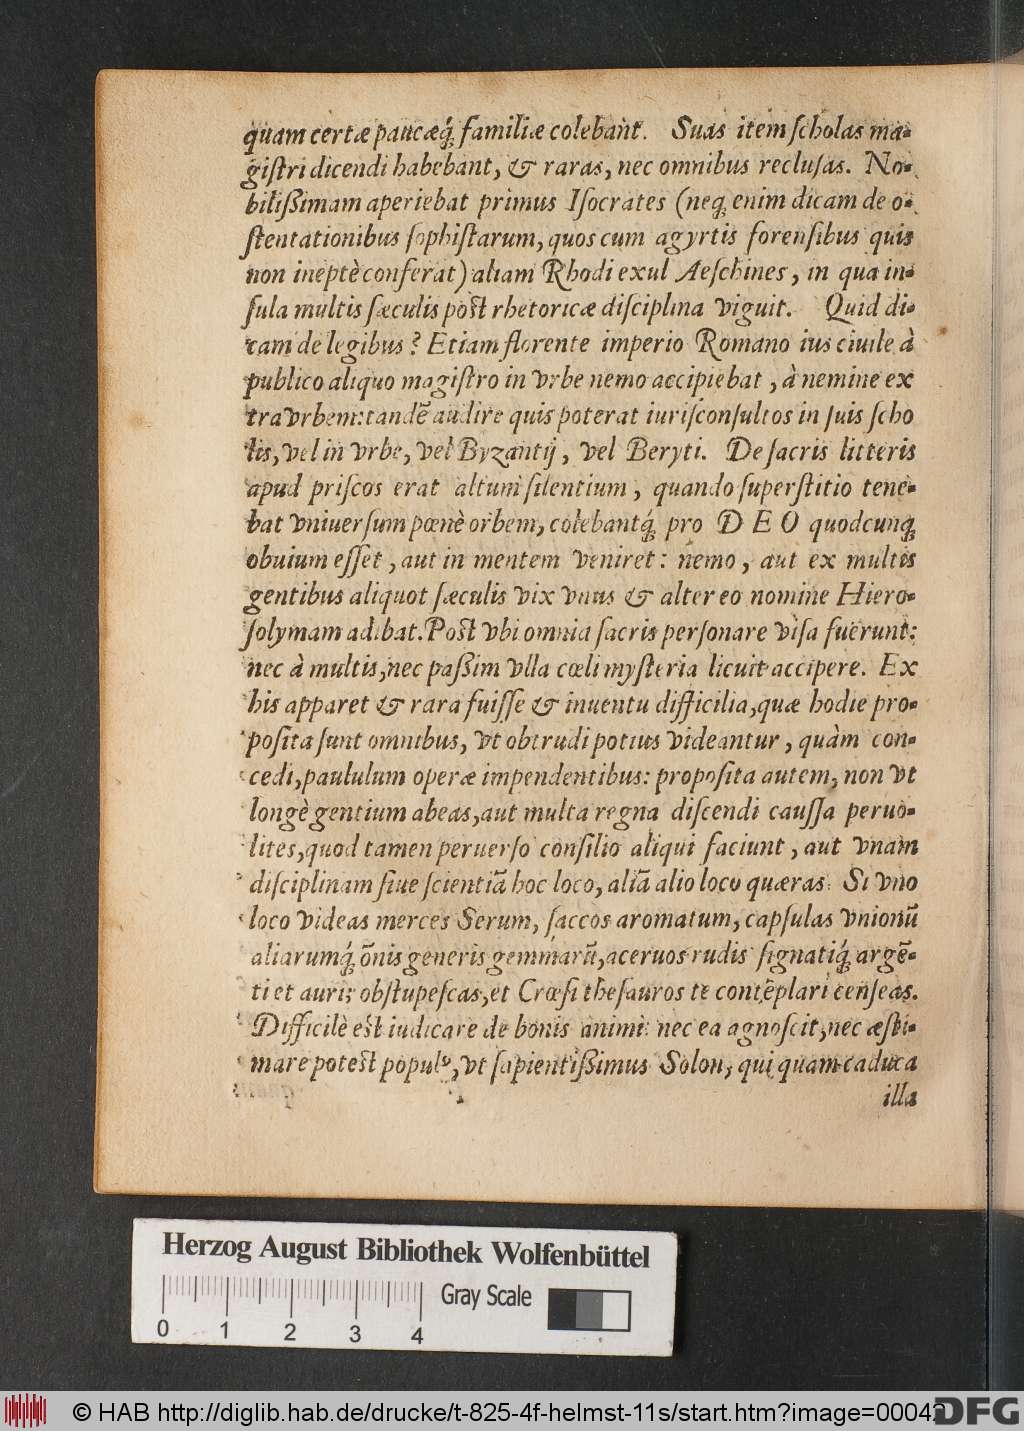 quam certæ paucæq́; familiæ colebant. Suas item ſcholas ma-
giſtri dicendi habebant, & raras, nec omnibus recluſas. No-
biliſſimam aperiebat primus Iſocrates (neq; enim dicam de o-
ſtentationibus ſophiſtarum, quos cum agyrtis forenſibus quis
non ineptè conferat) aliam Rhodi exul Aeſchines, in qua in-
ſula multis ſæculis poſt rhetoricæ diſciplina viguit. Quid di-
cam de legibus? Etiam florente imperio Romano ius ciuile à
publico aliquo magiſtro in vrbe nemo accipiebat, à nemine ex
tra vrbem: tandē audire quis poterat iuriſconſultos in ſuis ſcho
lis, vel in vrbe, vel Byzantij, vel Beryti. De ſacris litteris
apud priſcos erat altum ſilentium, quando ſuperſtitio tene-
bat vniuerſum pœnè orbem, colebantq́; pro DEO quodcunq;
obuium eſſet, aut in mentem veniret: nemo, aut ex multis
gentibus aliquot ſæculis vix vnus & alter eo nomine Hiero-
ſolymam adibat. Poſt vbi omnia ſacris perſonare viſa fuerunt:
nec à multis, nec paſſim vlla cœli myſteria licuit accipere. Ex
his apparet & rara fuiſſe & inuentu difficilia, quæ hodie pro-
poſita ſunt omnibus, vt obtrudi potius videantur, quàm con-
cedi, paululum operæ impendentibus: propoſita autem, non vt
longè gentium abeas, aut multa regna diſcendi cauſſa peruo-
lites, quod tamen peruerſo conſilio aliqui faciunt, aut vnam
diſciplinam ſiue ſcientiā hoc loco, aliā alio loco quæras. Si vno
loco videas merces Serum, ſaccos aromatum, capſulas vnionū
aliarumq́; ōnis generis gemmarū, aceruos rudis ſignatiq́; argē-
ti et auri; obſtupeſcas, et Crœſi theſauros te contēplari cenſeas.
Difficilè eſt iudicare de bonis animi: nec ea agnoſcit, nec æſti-
mare poteſt populꝰ, vt ſapientiſſimus Solon, qui quam caduca
illa
Herzog August Bibliothek Wolfenbüttel
Gray Scale
0 1 2 3 4
© HAB http://diglib.hab.de/drucke/t-825-4f-helmst-11s/start.htm?image=00042
DFG